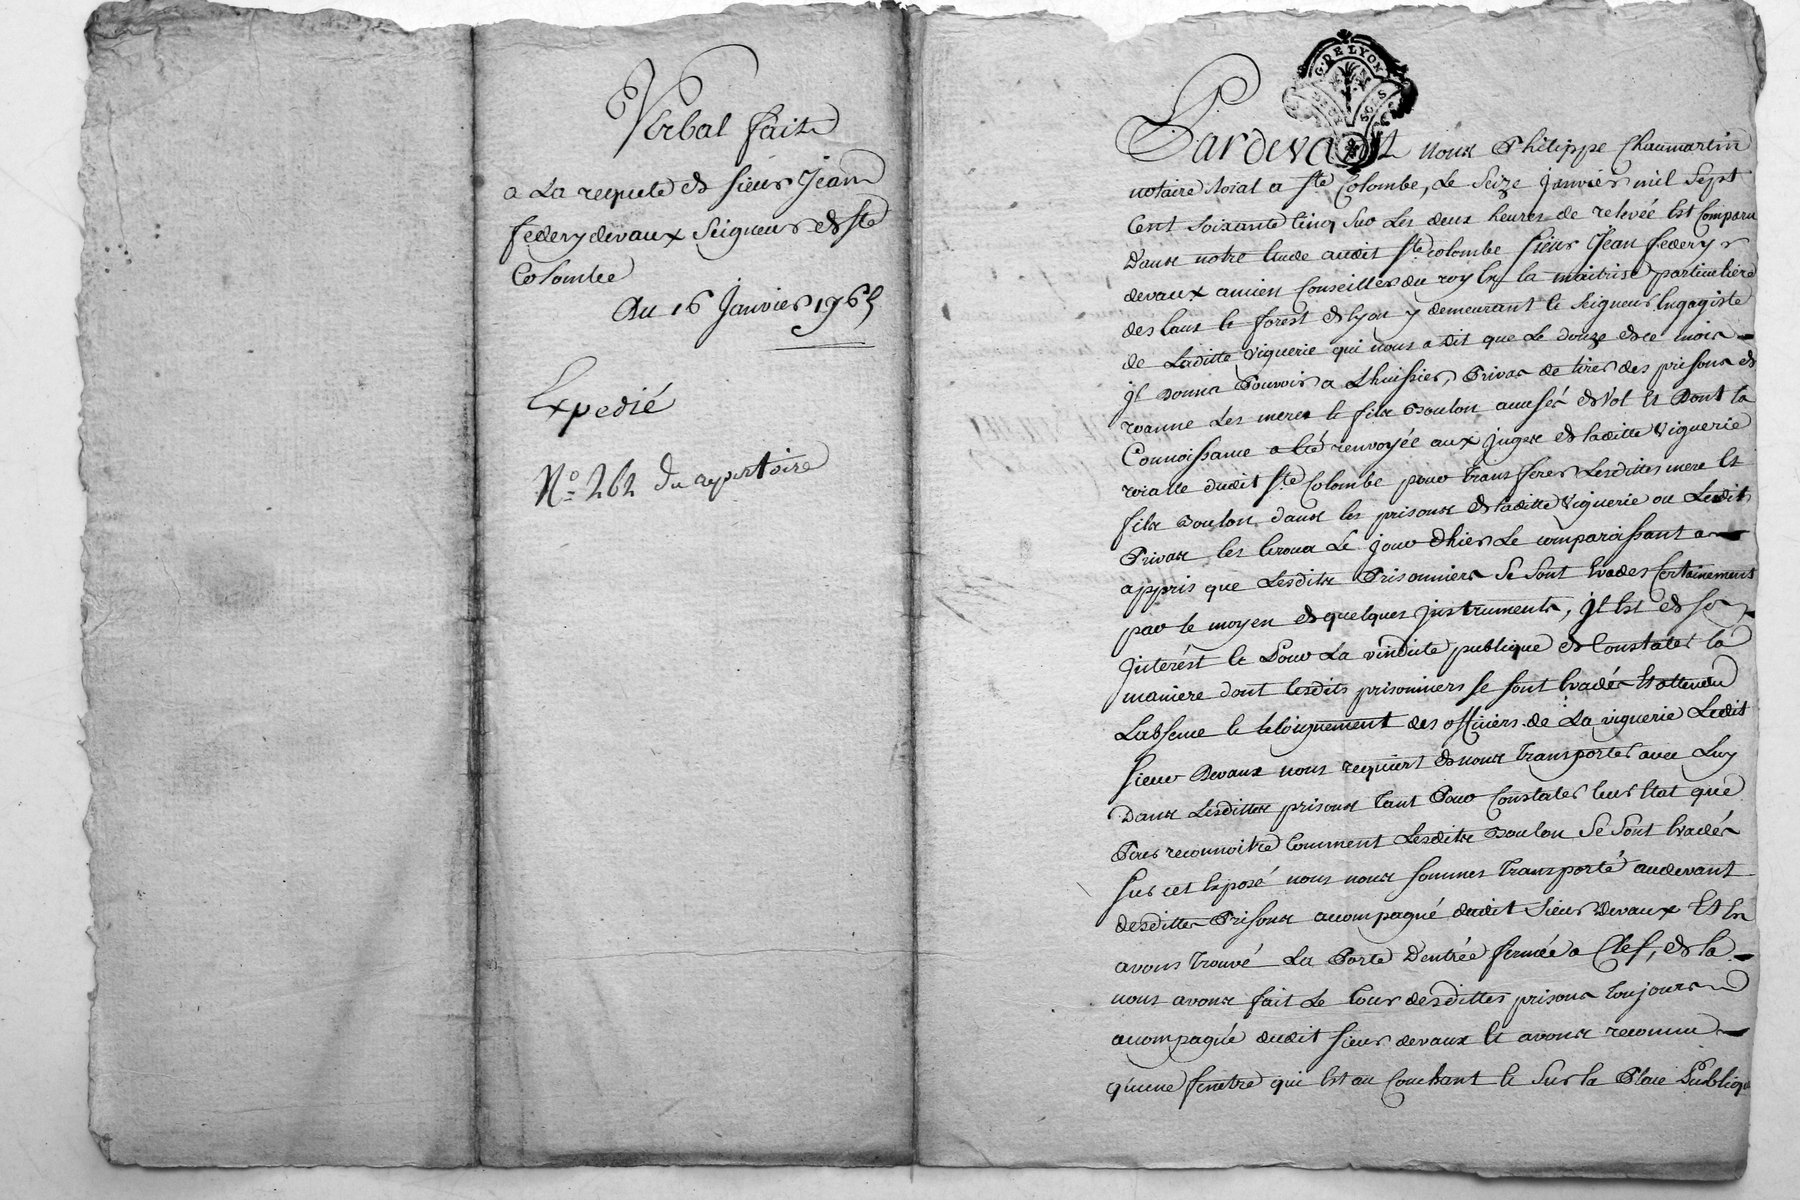 Verbal fait
a La requete de sieur Jean
federy devaux Seigneur de ste
Colombe
Au 16 Janvier 1765
Expedié
No. 262 du repertoire
G. DE LYON
Pardevant nous Philippe Chaumartin
notaire roial a ste Colombe, Le Seize Janvier mil Sept
Cent soixante Cinq Sur Les deux heures de relevée Est Comparu
dans notre Etude audit ste Colombe sieur Jean federy
devaux ancien Conseiller du roy En la maitrise particuliere
des Eaux Et forest de lyon y demeurant Et Seigneur Engagiste
de Laditte viguerie qui nous a dit que Le douze de ce mois
Jl donna Pouvoir a Lhuissier Privas de tirer des prisons de
roanne Les mere Et fils Doulon accusés de vol Et Dont la
Connoissance a Eté renvoyée aux juges de laditte viguerie
roialle dudit ste Colombe pour transferer Lesdittes mere Et
fils Doulon dans les prisons de laditte viguerie ou Ledit
Privas les Ecroua Le jour d'hier Le comparoissant a
appris que Lesdits Prisonniers Se sont Evadés Certainement
par le moyen de quelques jnstruments, jl Est de son
jnterést Et Pour La vindicte publique de Constater la
maniere dont lesdits prisonniers se sont Evadés Et attendu
Labsence Et Leloignement des officiers de La viguerie Ledit
sieur Devaux nous requiert de nous transporter avec Luy
Dans Lesdittes prisons tant Pour Constater leur Etat que
Pour reconnoitre Comment Lesdits Doulon Se Sont Evadés
sur cet Exposé nous nous sommes transporté audevant
desdittes Prisons acompagné dudit Sieur Devaux Et En
avons trouvé La Porte D'entrée fermée a Clef, de la
nous avons fait Le tour desdittes prisons toujours
acompagné dudit sieur devaux Et avons reconnu
qu'une fenetre qui Est au Couchant Et Sur la Place Publique